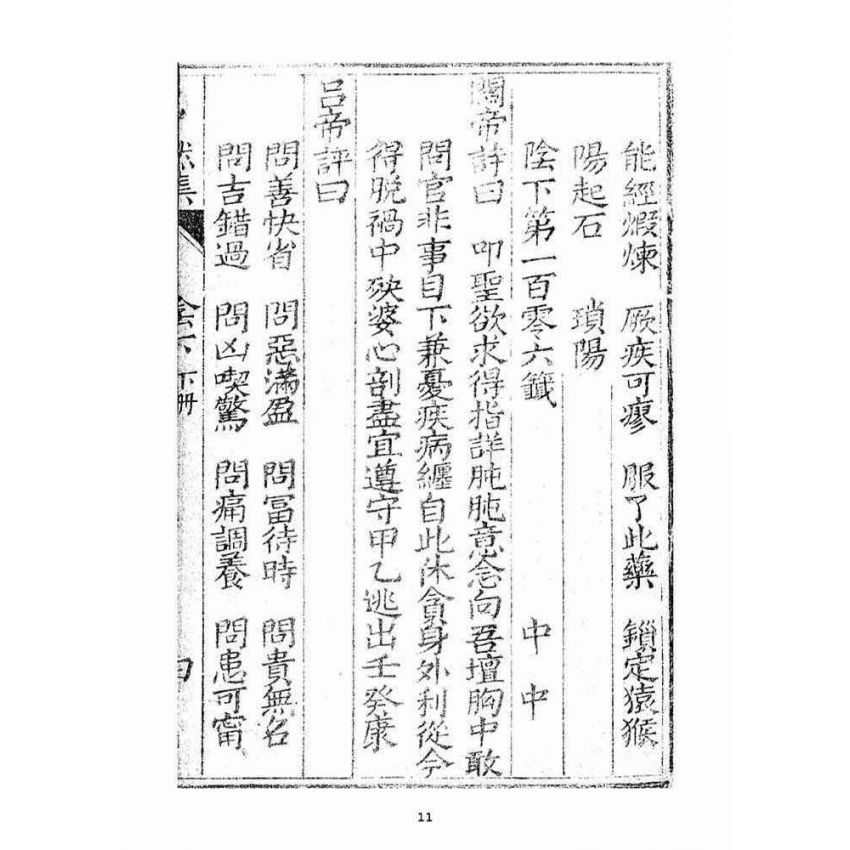 能經煅煉 厥疾可瘳 服了此藥 鎖定猿猴
陽起石 瑣陽
陰下第一百零六籤 中中
關帝詩曰 叩聖欲求得指詳肫肫意念向吾壇胸中敢
問官非事目下兼憂疾病纏自此休貪身外利從今
得脫禍中殃婆心剖盡宜遵守甲乙逃出壬癸康
呂帝評曰
問善快省 問惡滿盈 問富待時 問貴無名
問吉錯過 問凶喫驚 問痛調養 問患可甯
然集 陰下 下冊
11